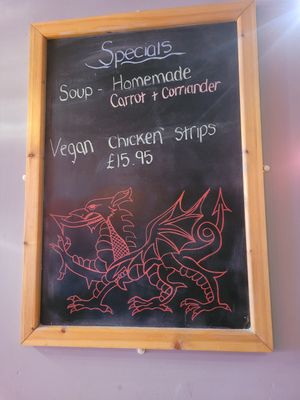 Specials
Soup - Homemade
Carrot + Corriander
Vegan Chicken Strips
£15.95